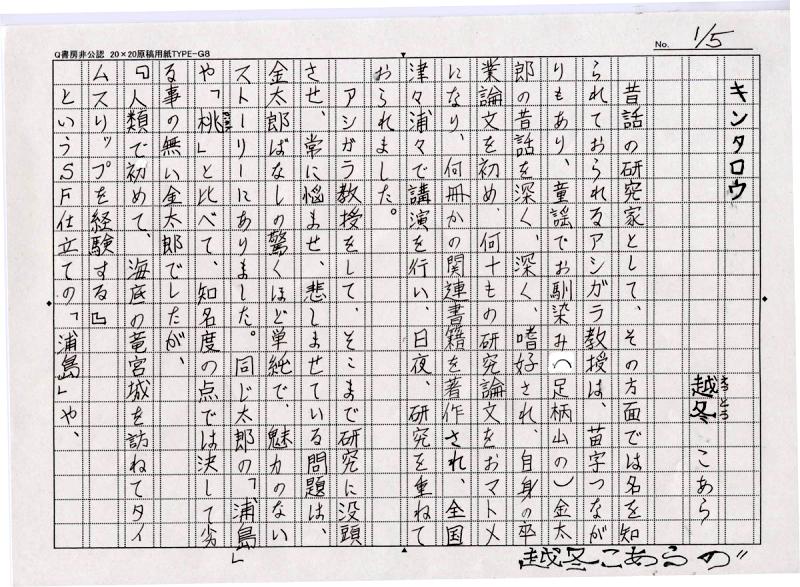 Q書房非公認 20×20原稿用紙TYPE-G8
No. 1/5
キンタロウ
越冬 こあら
えっとう
昔話の研究家として、その方面では名を知
られておられるアシガラ教授は、苗字つなが
りもあり、童謡でお馴染み(足柄山の)金太
郎の昔話を深く、深く、嗜好され、自身の卒
業論文を初め、何十もの研究論文をおマトメ
になり、何冊かの関連書籍を著作され、全国
津々浦々で講演を行い、日夜、研究を重ねて
おられました。
アシガラ教授をして、そこまで研究に没頭
させ、常に悩ませ、悲しませている問題は、
金太郎ばなしの驚くほど単純で、魅力のない
ストーリーにありました。同じ太郎の「浦島」
や「桃」と比べて、知名度の点では決して劣
る事の無い金太郎でしたが、
『人類で初めて、海底の竜宮城を訪ねてタイ
ムスリップを経験する』
というSF仕立ての「浦島」や、
越冬こあらの〃